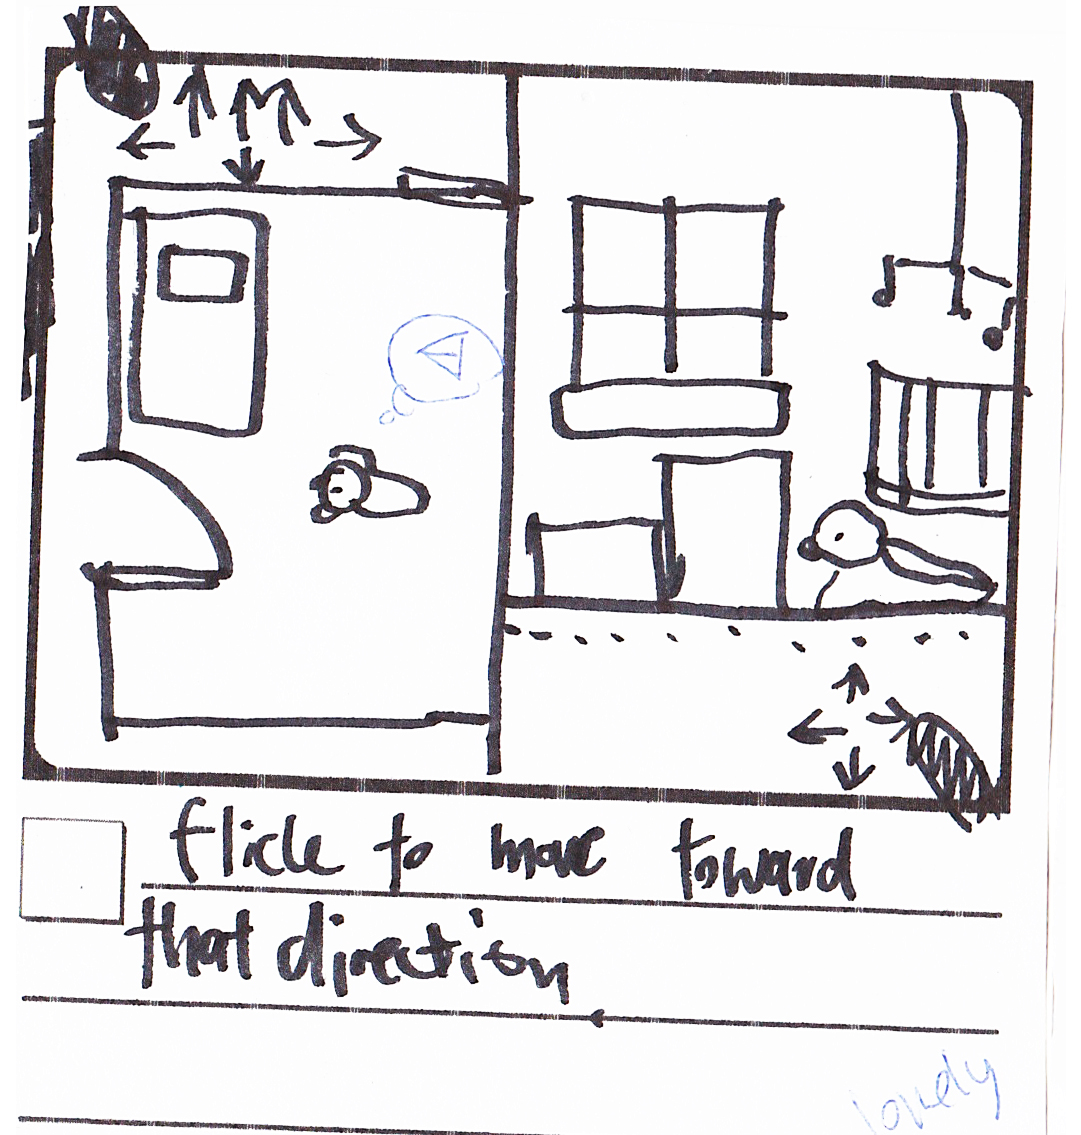 flick to move toward
that direction
lovely